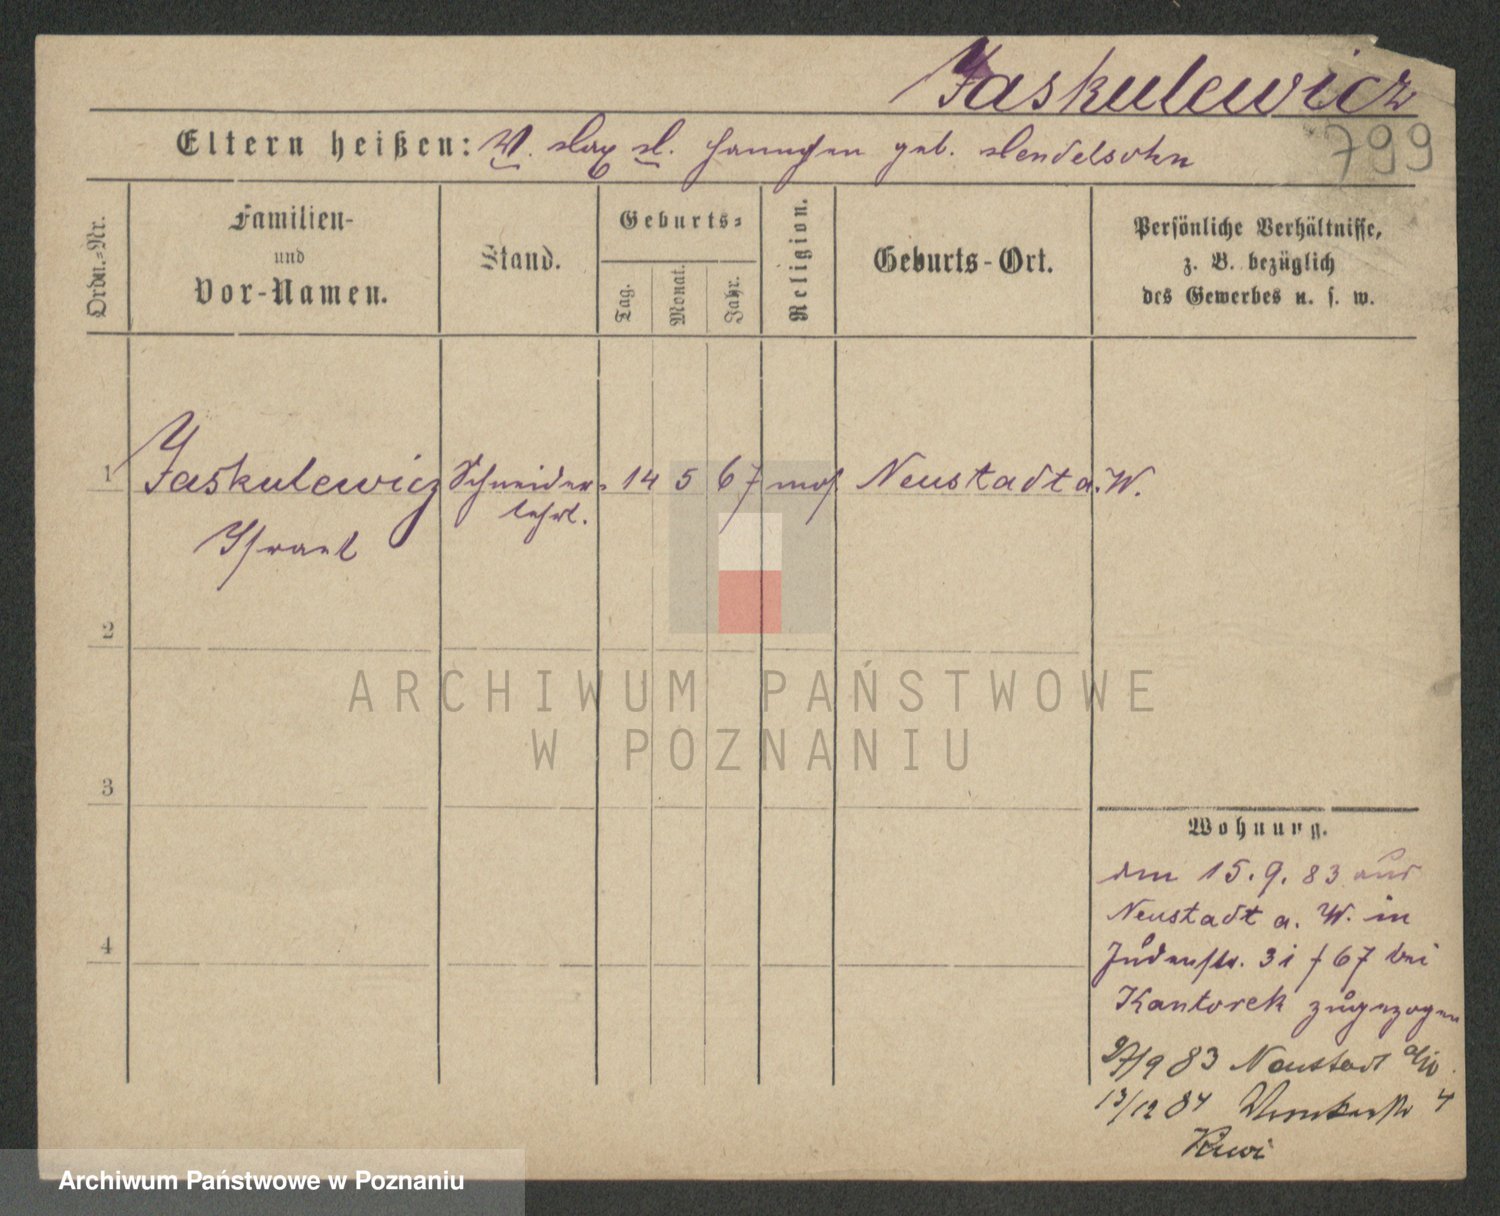 Jaskulewicz
799
Eltern heißen: W. Max M. Hannchen geb. Mendelsohn
Ordn.-Nr.
Familien-
und
Vor-Namen.
Stand.
Geburts-
Tag.
Monat.
Jahr.
Religion.
Geburts-Ort.
Persönliche Verhältnisse,
z. B. bezüglich
des Gewerbes u. s. w.
1 Jaskulewicz Schneider- 14 5 67 mos. Neustadt a. W.
lehrl.
Israel
2
ARCHIWUM PAŃSTWOWE
W POZNANIU
3
Wohnung.
den 15. 9. 83 aus
4
Neustadt a. W. in
Judenstr. 31 f 67 bei
Kantorek zugezogen
27/9 83 Neustadt a/W.
13/12 84 4
Archiwum Państwowe w Poznaniu